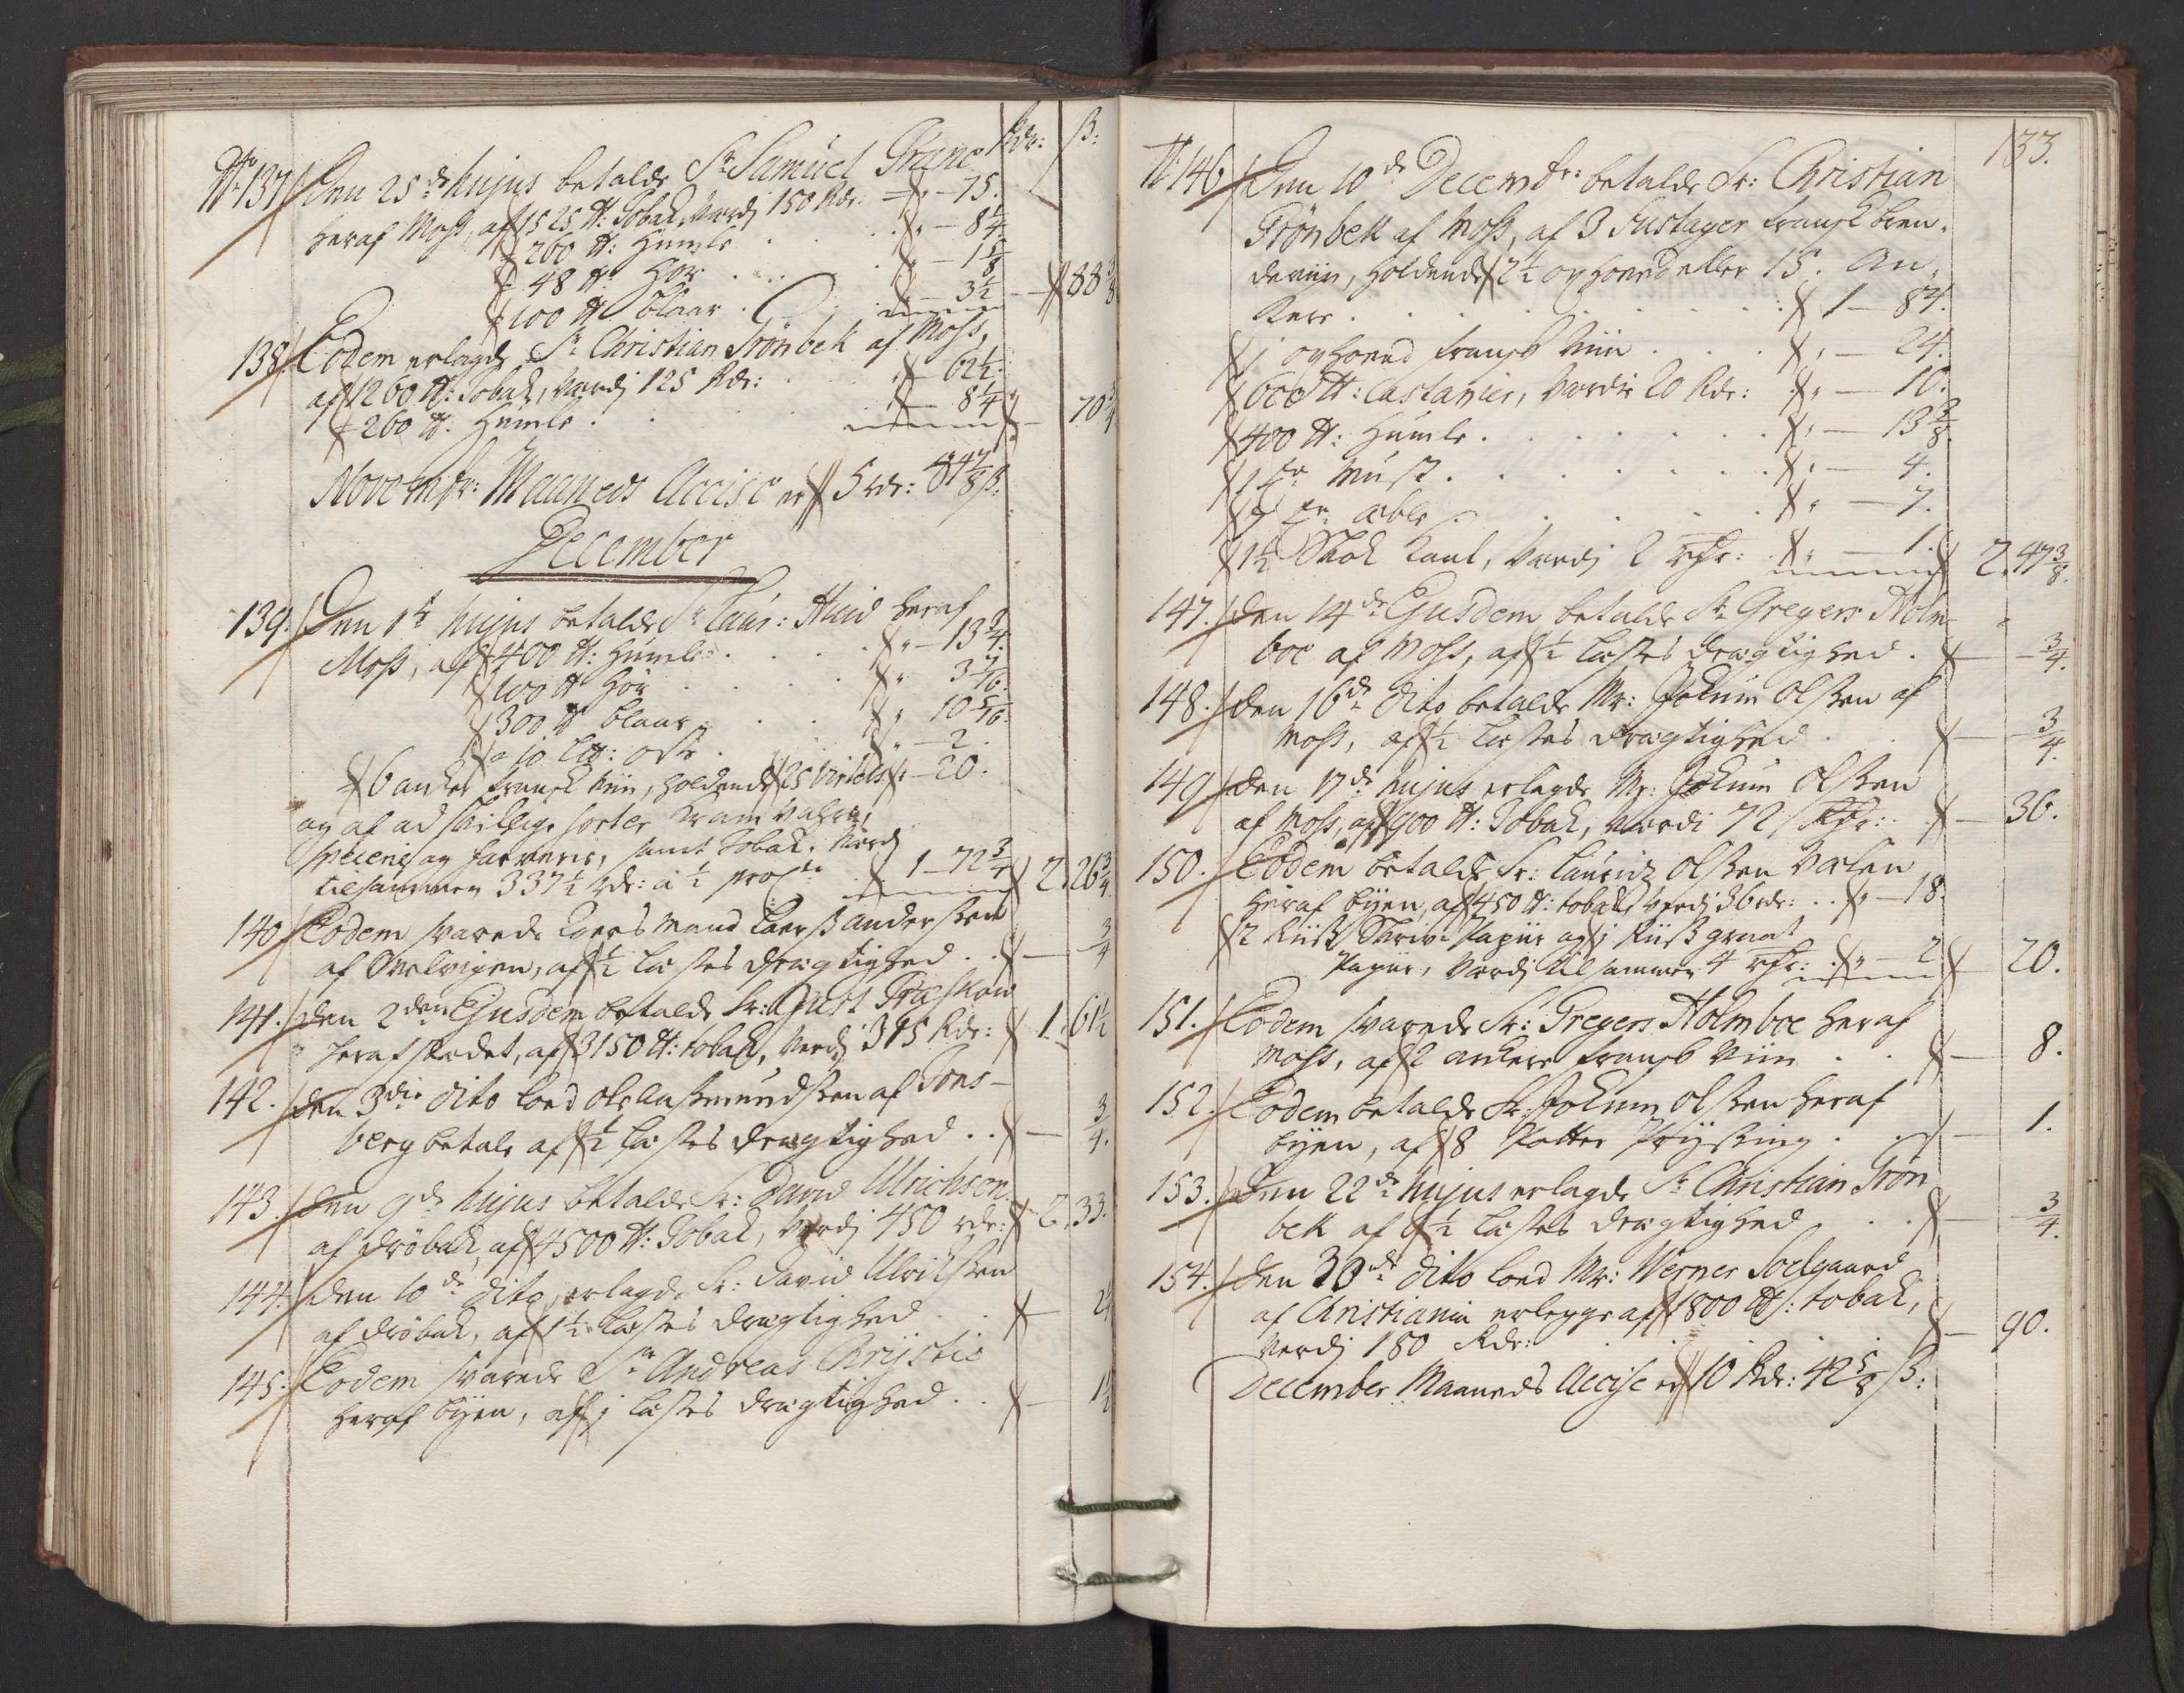 Rdr: ß:
No 137. Den 25de hujus betalde Sr Samuel Grane
heraf Moss, af 1525 ℔: Tobak, Værdj 150 Rdr: „ — 75.
260 ℔: Humle . . . „ — 8 1/4
48 ℔ Hör . . . „ — 1 5/8
100 ℔ blaar . . . — 3 1/2 — 88 3/8
138. Eodem erlagde Sr Christian Grönbek af Moss,
af 1260 ℔: Tobak, Værdj 125 Rdr: . . „ — 62 1/2
260 ℔. Humle . . . 8 1/4 — 70 3/4
Novembr: Maaneds Accise er 5 rdr: 84 7/8 ß:
December
139. Den 1te hujus betalde Sr Laur: Huid heraf
Moss, af 400 ℔: Humle . . . „ — 13 3/4.
100 ℔ Hör . . . „ 3 7/16.
300 ℔ blaar . . . „ 10 5/16.
10 L℔: oste . . . „ — 2.
6 anker fransk Viin, holdende 25 Virtels „ — 20.
og af adskillige sorter Kram Vahre,
specerie og farverie, samt Tobak, Værdj
tilsammen 337 1/2 rdr: à 1/2 proCto . 1 — 72 3/4 2. 26 3/4
140. Eodem svarede Lars Mand Lars Andersen
af Onelvigen, af 1/2 Læstes drægtighed . . — 3/4
141. den 2den Ejusdem betalde Sr: Just Træskow
heraf stedet, af 3150 ℔: tobak, Verdj 315 Rdr: 1. 61 1/2
142. den 3die dito lod Ole Aasmundsen af Tons-
berg betale af 1/2 Læstes drægtighed . . — 3/4.
143. den 9de hujus betalde Sr: David Ulrichsen
af Dröbak, af 4500 ℔: Tobak, Værdj 450 rdr: 2. 33.
144. den 10de dito, erlagde Sr: David Ulrichsen
af Dröbak, af 1 1/2 Læstes drægtighed . . — 2 1/4
145. Eodem svarede Sr Andreas Chrijstie
heraf byen, af 1 Læstes drægtighed . . — 1 1/2
133.
No 146. Den 10de Decembr: betalde Sr: Christian
Grönbek af Moss, af 3 Fustager fransk bren-
deviin, holdende 2 1/2 oxhoved eller 15. An-
kere . . . . . 1 — 84.
1 oxhoved fransk Viin . . . „ — 24.
600 ℔: Castanier, Værdie 20 Rdr: „ — 10.
400 ℔: Humle . . . . „ — 13 3/8.
1 tr Must . . . . „ — 4.
7 tr æble . . . . „ — 7.
1 1/2 Stok Kant, Værdj 2 rdr: „ — 1. 2. 47 3/8.
147. den 14de Ejusdem betalde Sr Gregers Holm-
boe af Moss, af 1/2 Læstes drægtighed . — 3/4.
148. den 16de dito betalde Mr: Jokum Olsen af
Moss, af 1/2 Læstes drægtighed . . — 3/4.
149. den 17de hujus erlagde Mr: Jokum Olsen
af Moss, af 900 ℔: Tobak, Værdi 72 Rdr: . — 36.
150. Eodem betalde Sr: Lauridz Olsen Værlen
heraf byen, af 450 ℔: tobak, Verdj 36 rdr: . . „ — 18.
2 Riiß Skriv Papiir og 1 Riiß graat
Papiir, Værdj tilsammen 4 rdr: . „ — 2 — 20.
151. Eodem svarede Sr: Gregers Holmboe heraf
Moss, af 2 ankere fransk Viin . . — 8.
152. Eodem betalde Sr: Jokum Olsen heraf
byen, af 8 Potter Prysing . . — 1.
153. Den 22de hujus erlagde Sr Christian Grön
bek af 1/2 Læstes drægtighed . . . — 3/4.
154. den 30de dito lod Mr: Werner Solgaard
af Christiania erlegge af 1800 ℔: tobak,
Verdj 180 Rdr: . . — 90.
December Maaneds Accise er 10 Rdr: 42 5/8 ß: